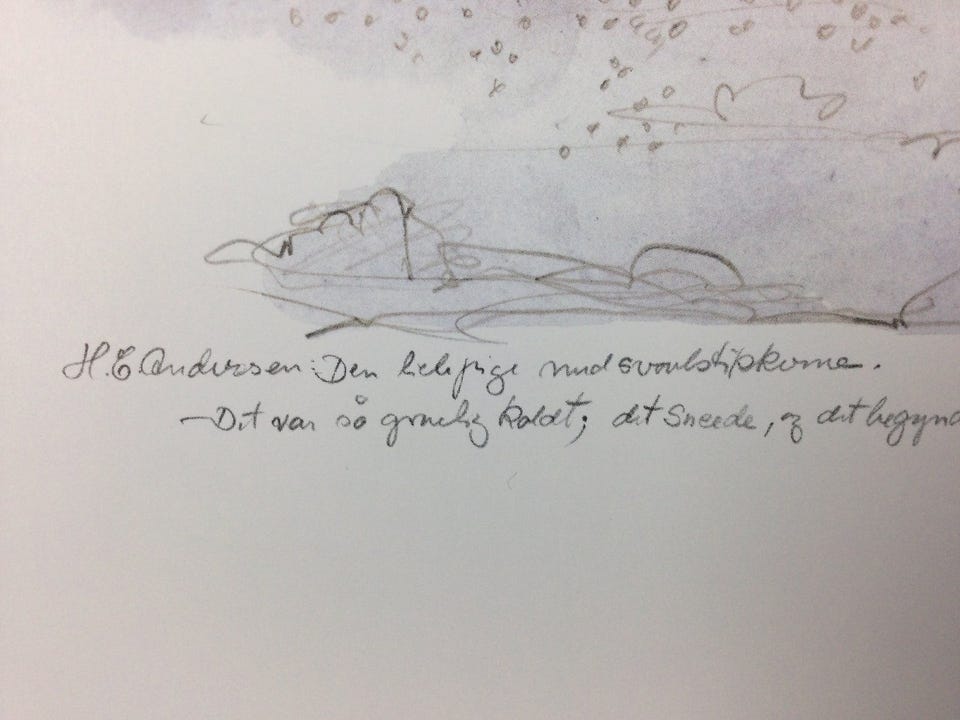 H.C. Andersen: Den lille pige med svovlstikkerne.
— Det var så gruelig koldt; det sneede, og det begynd